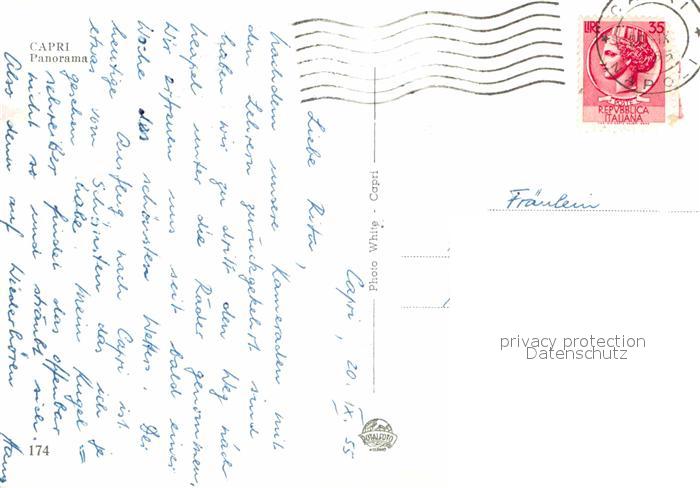 CAPRI
Panorama
Capri, 20. IX. 55
Liebe Rita,
nachdem unsere Kameraden mit
den Lehrern zurückgekehrt sind
haben wir zu dritt den Weg nach
Neapel unter die Räder genommen.
Wir erfreuen uns seit bald einer
Woche des schönsten Wetters. Der
heutige Ausflug nach Capri ist
etwas vom Schönsten das ich je
gesehen habe. Mein Kugel=
schreiber findet das offenbar
nicht so und sträubt sich.
Also denn auf Wiederhören
Hans
174
Photo White - Capri
LIRE 35
POSTE
REPVBBLICA
ITALIANA
Fräulein
privacy protection
Datenschutz